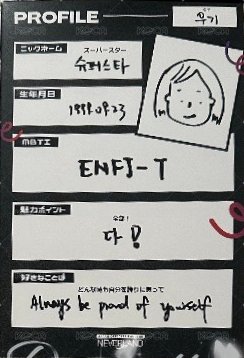 PROFILE
우기
ニックネーム
スーパースター
슈퍼스타
生年月日
1999.09.23
MBTI
ENFJ-T
魅力ポイント
全部!
다!
好きなことば
どんな時も自分を誇りに思って
Always be proud of yourself
NEVERLAND